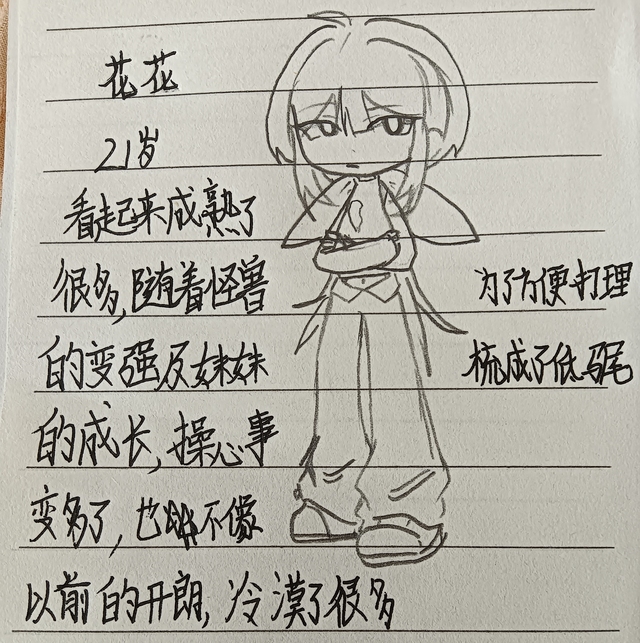 花花
21岁
看起来成熟了
很多,随着怪兽
的变强及妹妹
的成长,操心事
变多了,也不像
以前的开朗,冷漠了很多
为了方便打理
梳成了低马尾